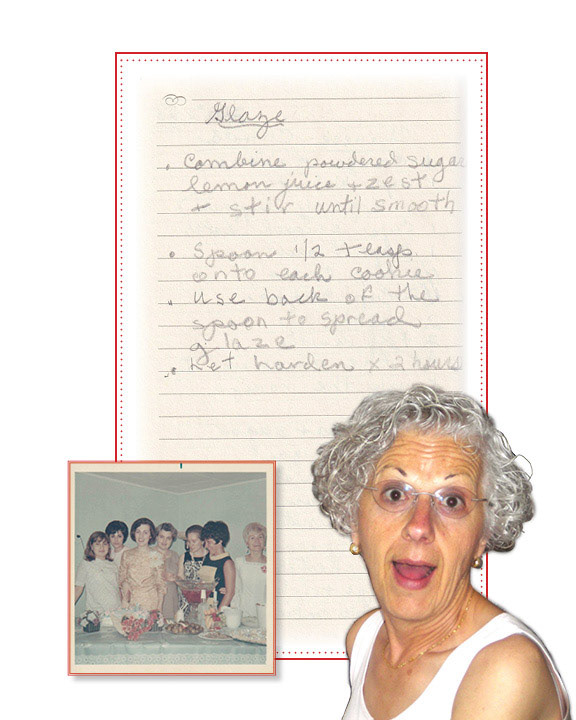 Glaze
• Combine powdered sugar
lemon juice + zest
+ stir until smooth
• Spoon 1/2 teasp.
onto each cookie
• Use back of the
spoon to spread
glaze
• Let harden x 2 hours